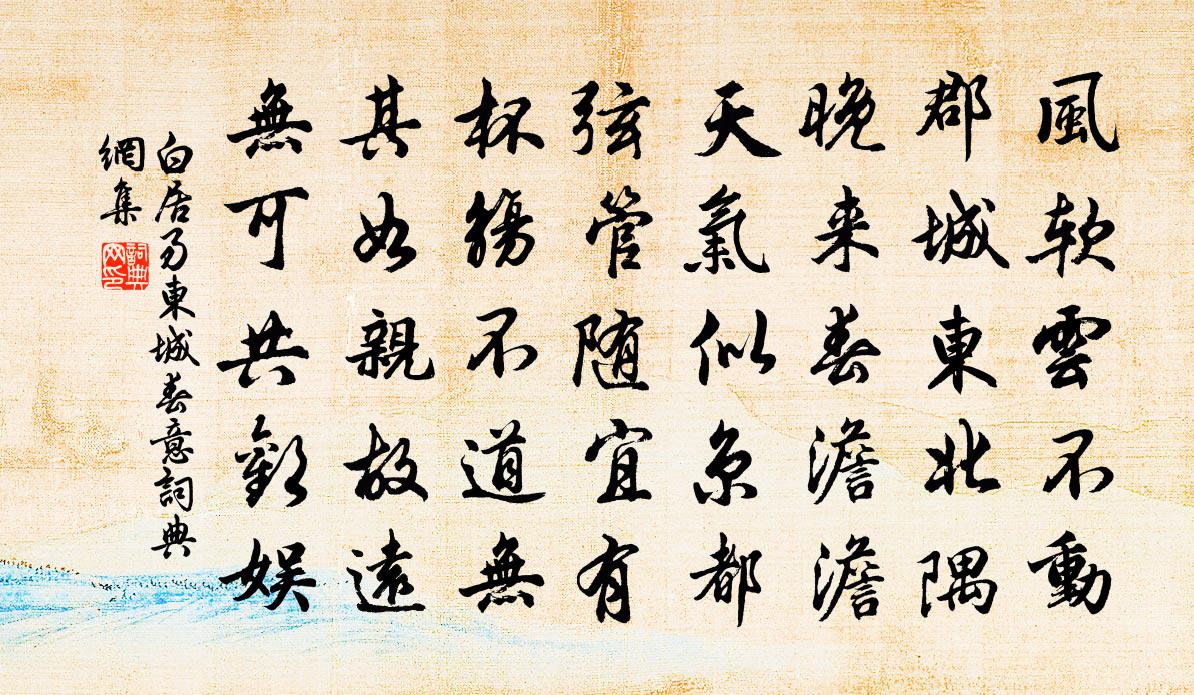 風軟雲不動
郡城東北隅
晚来春澹澹
天氣似京都
弦管随宜有
杯觴不道無
其如親故遠
無可共歡娛
白居易東城春意詞典
網集
詞典网印